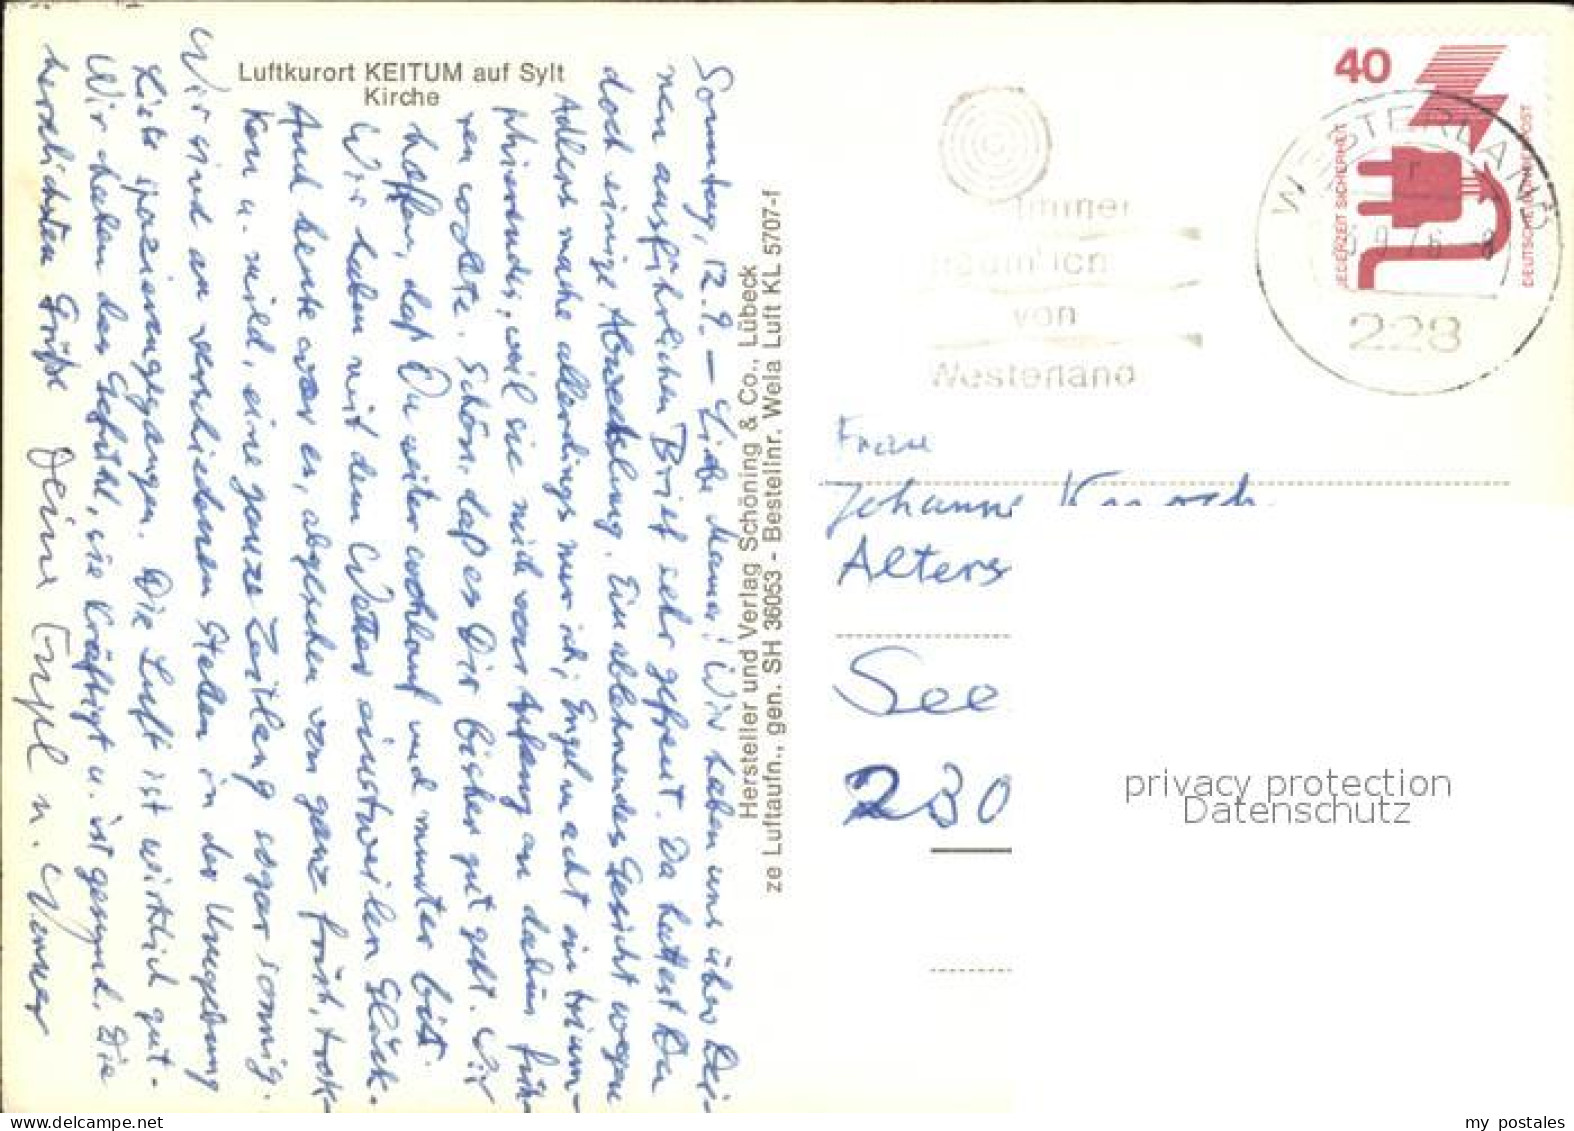 Luftkurort KEITUM auf Sylt
Kirche
Sonntag, 12.9. – Liebe Mama! Wir haben uns über Dei-
nen ausführlichen Brief sehr gefreut. Da hattest Du
doch einige Abwechslung. Ein ablehnendes Gesicht wegen
Adlers mache allerdings nur ich; Engel macht ein trium-
phierendes, weil sie mich von Anfang an dahin füh-
ren wollte. Schön, daß es Dir bisher gut geht. Wir
hoffen, daß Du weiter wohlauf und munter bist.
Wir haben mit dem Wetter einstweilen Glück.
Auch heute war es, abgesehen von ganz früh, trok-
ken u. mild, eine ganze Zeitlang sogar sonnig.
Wir sind an verschiedenen Stellen in der Umgebung
Kiste spazierengegangen. Die Luft ist wirklich gut.
Wir haben das Gefühl, sie kräftigt u. ist gesund. Die
herzlichsten Grüße Deine Engel u. Werner
Hersteller und Verlag Schöning & Co., Lübeck
ze Luftaufn., gen. SH 36053 - Bestellnr. Wela Luft KL 5707-f
40
JEDERZEIT SICHERHEIT
DEUTSCHE BUNDESPOST
WESTERLAND
9.76
228
von
Westerland
Frau
Alters
See
230
privacy protection
Datenschutz
my postales